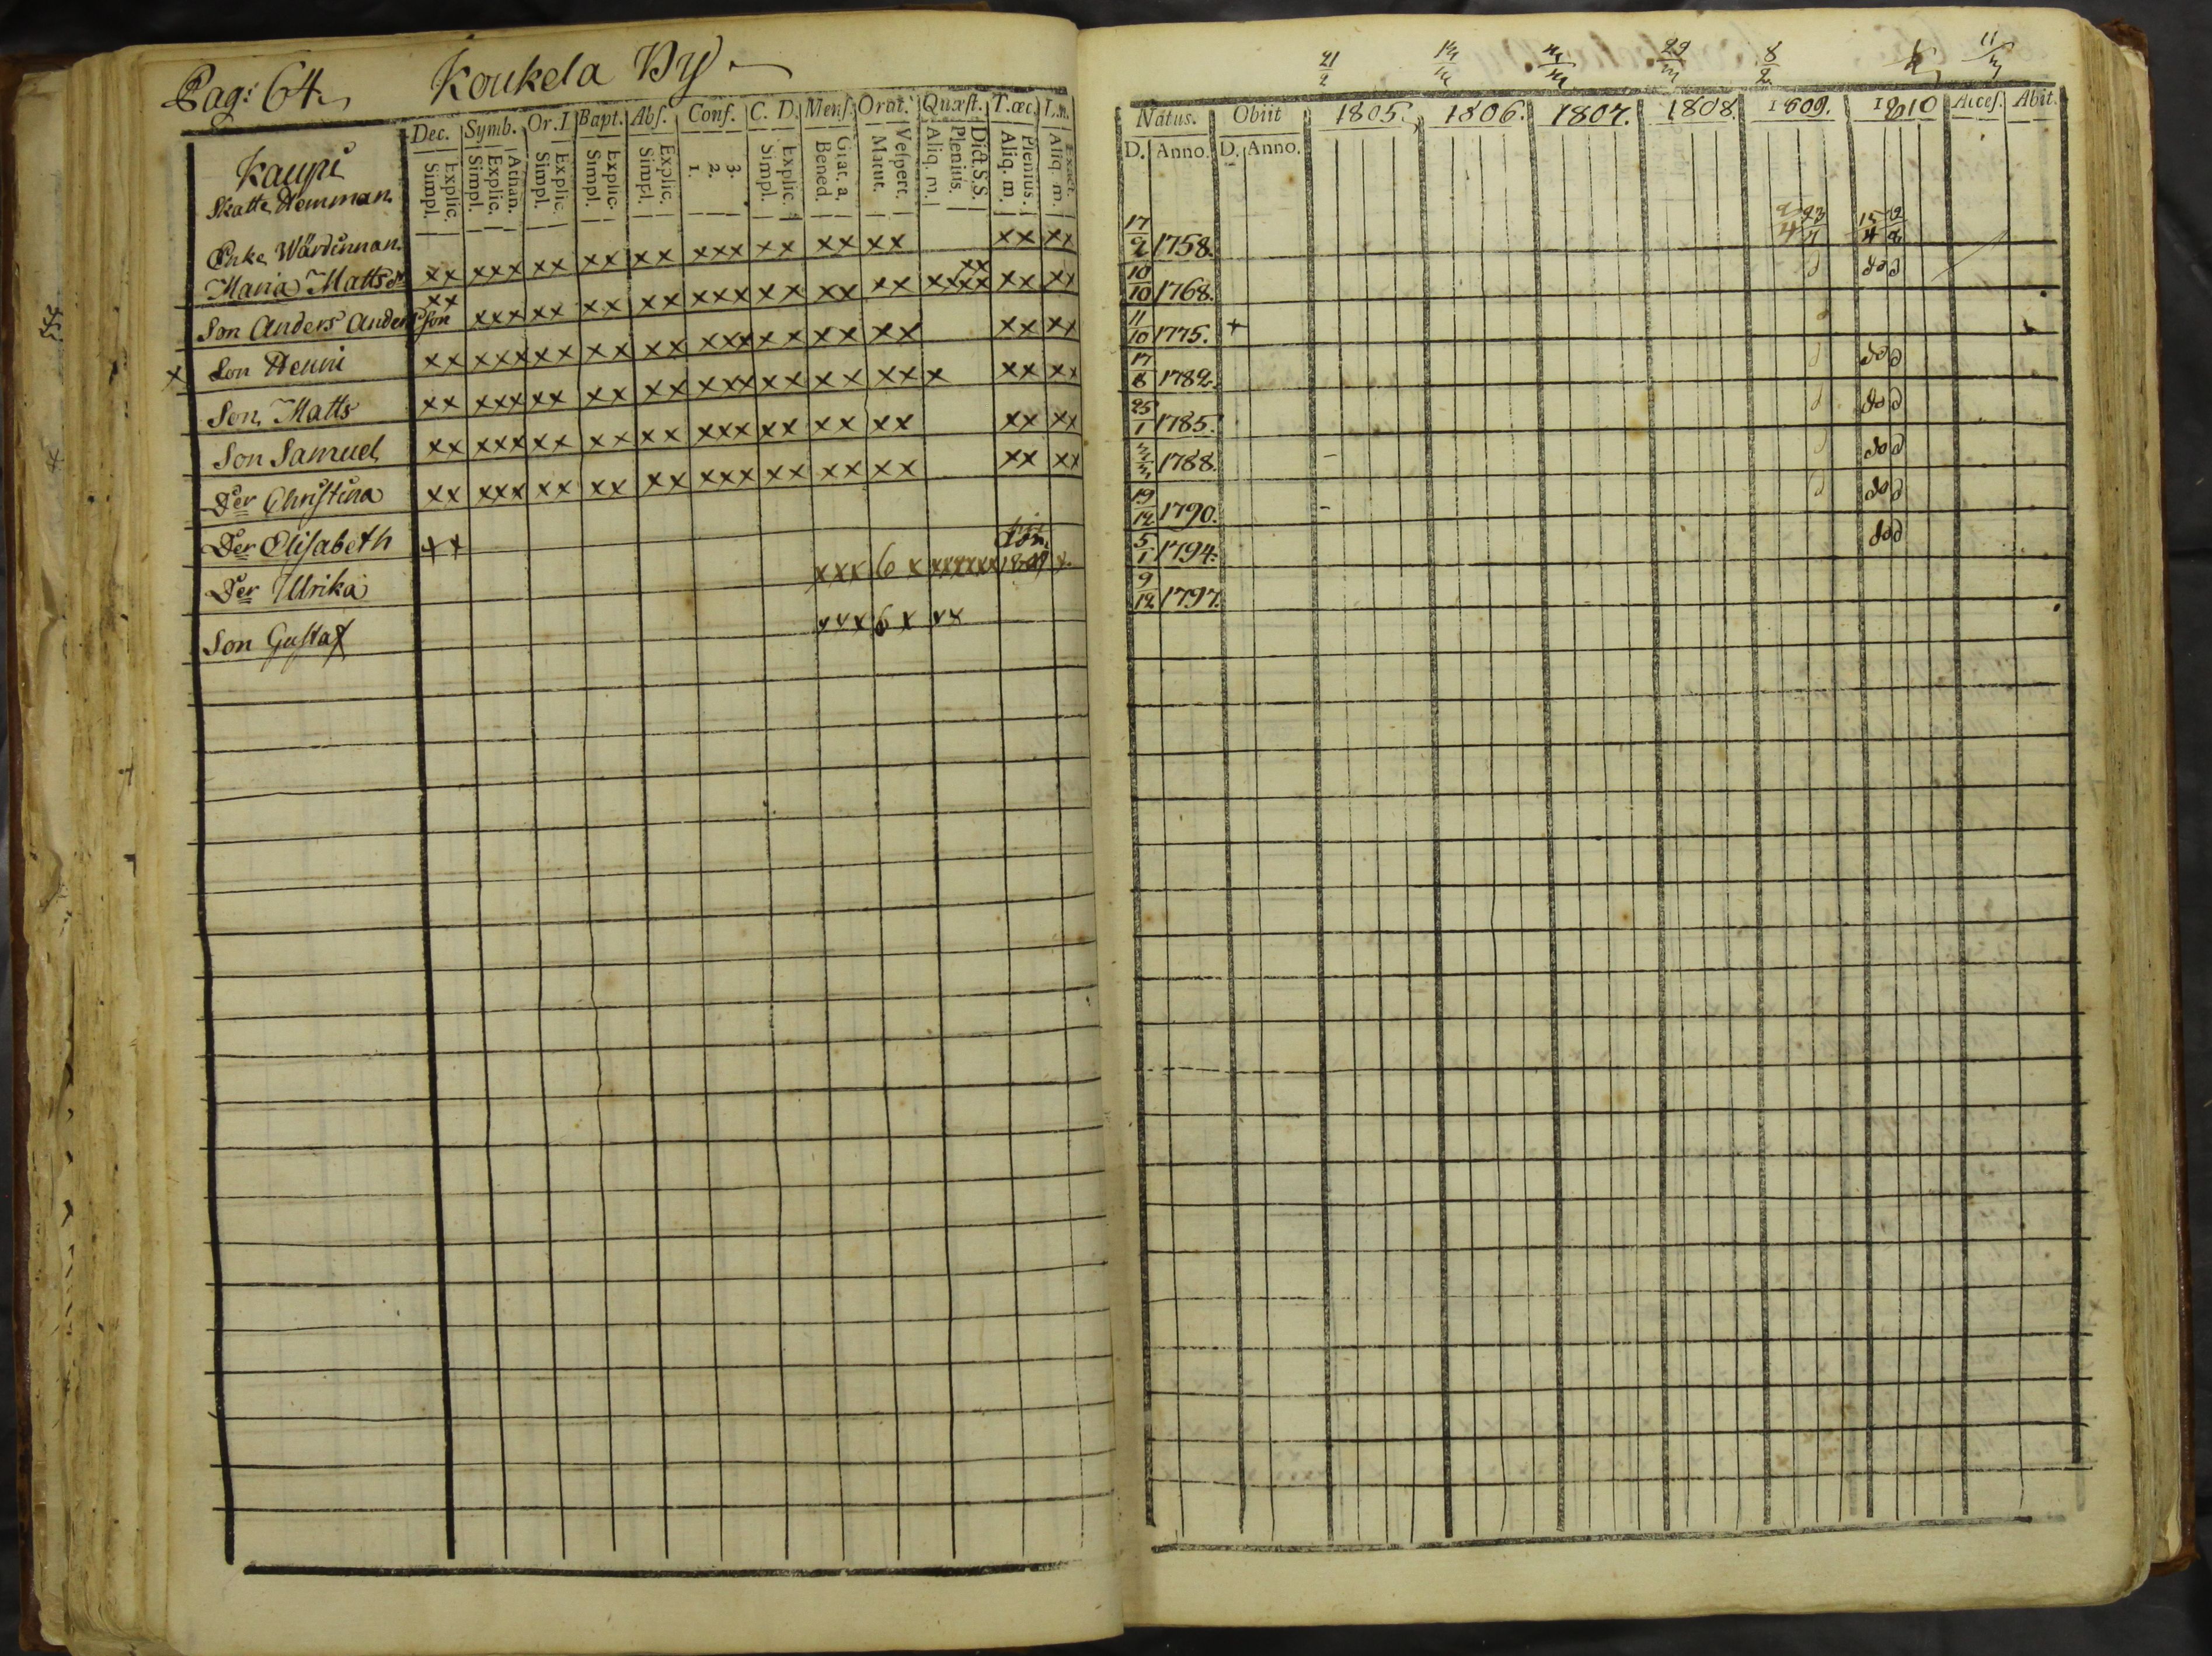 Pag: 64. Koukela By
Dec. Symb. Or.I Bapt. Abſ. Conf. C. D. Menſ. Orat. Quæſt. T.œc. L.n.
Explic. Simpl. Athan. Explic. Simpl. Explic. Simpl. Explic. Simpl. Explic. Simpl. 3. 2. 1. Explic. Simpl. Grat. a. Bened. Veſpert. Matut. Dict.S.S. Plenius. Aliq. m. Plenius. Aliq. m. Exact. Aliq. m.
Kaupi
Skatte Hemman.
Enke Wärdinnan
Maria Mattsdr xx xxx xx xx xx xxx xx xx xx xx xx
Son Anders Andersson xx xxx xx xx xx xxx xx xx xx xxxx xx xx xx
x Son Henric xx xxx xx xx xx xxx xx xx xx xx xx
Son Matts xx xxx xx xx xx xxx xx xx xx x xx xx
Son Samuel xx xxx xx xx xx xxx xx xx xx xx xx
Der Christina xx xxx xx xx xx xxx xx xx xx xx xx
Der Elisabeth xx
Der Ulrika xxx 6 x xxxxxx x
Son Gustaf xxx 6 x xx
21/2 29/m 8/2 11/m
Natus. Obiit 1805. 1806. 1807. 1808. 1809. 1810 Acceſ. Abit.
D. Anno. D. Anno.
17/2 1758.
10/10 1768.
11/10 1775. +
17/8 1782.
25/1 1785.
1788.
19/12 1790.
5/1 1794.
9/12 1797.